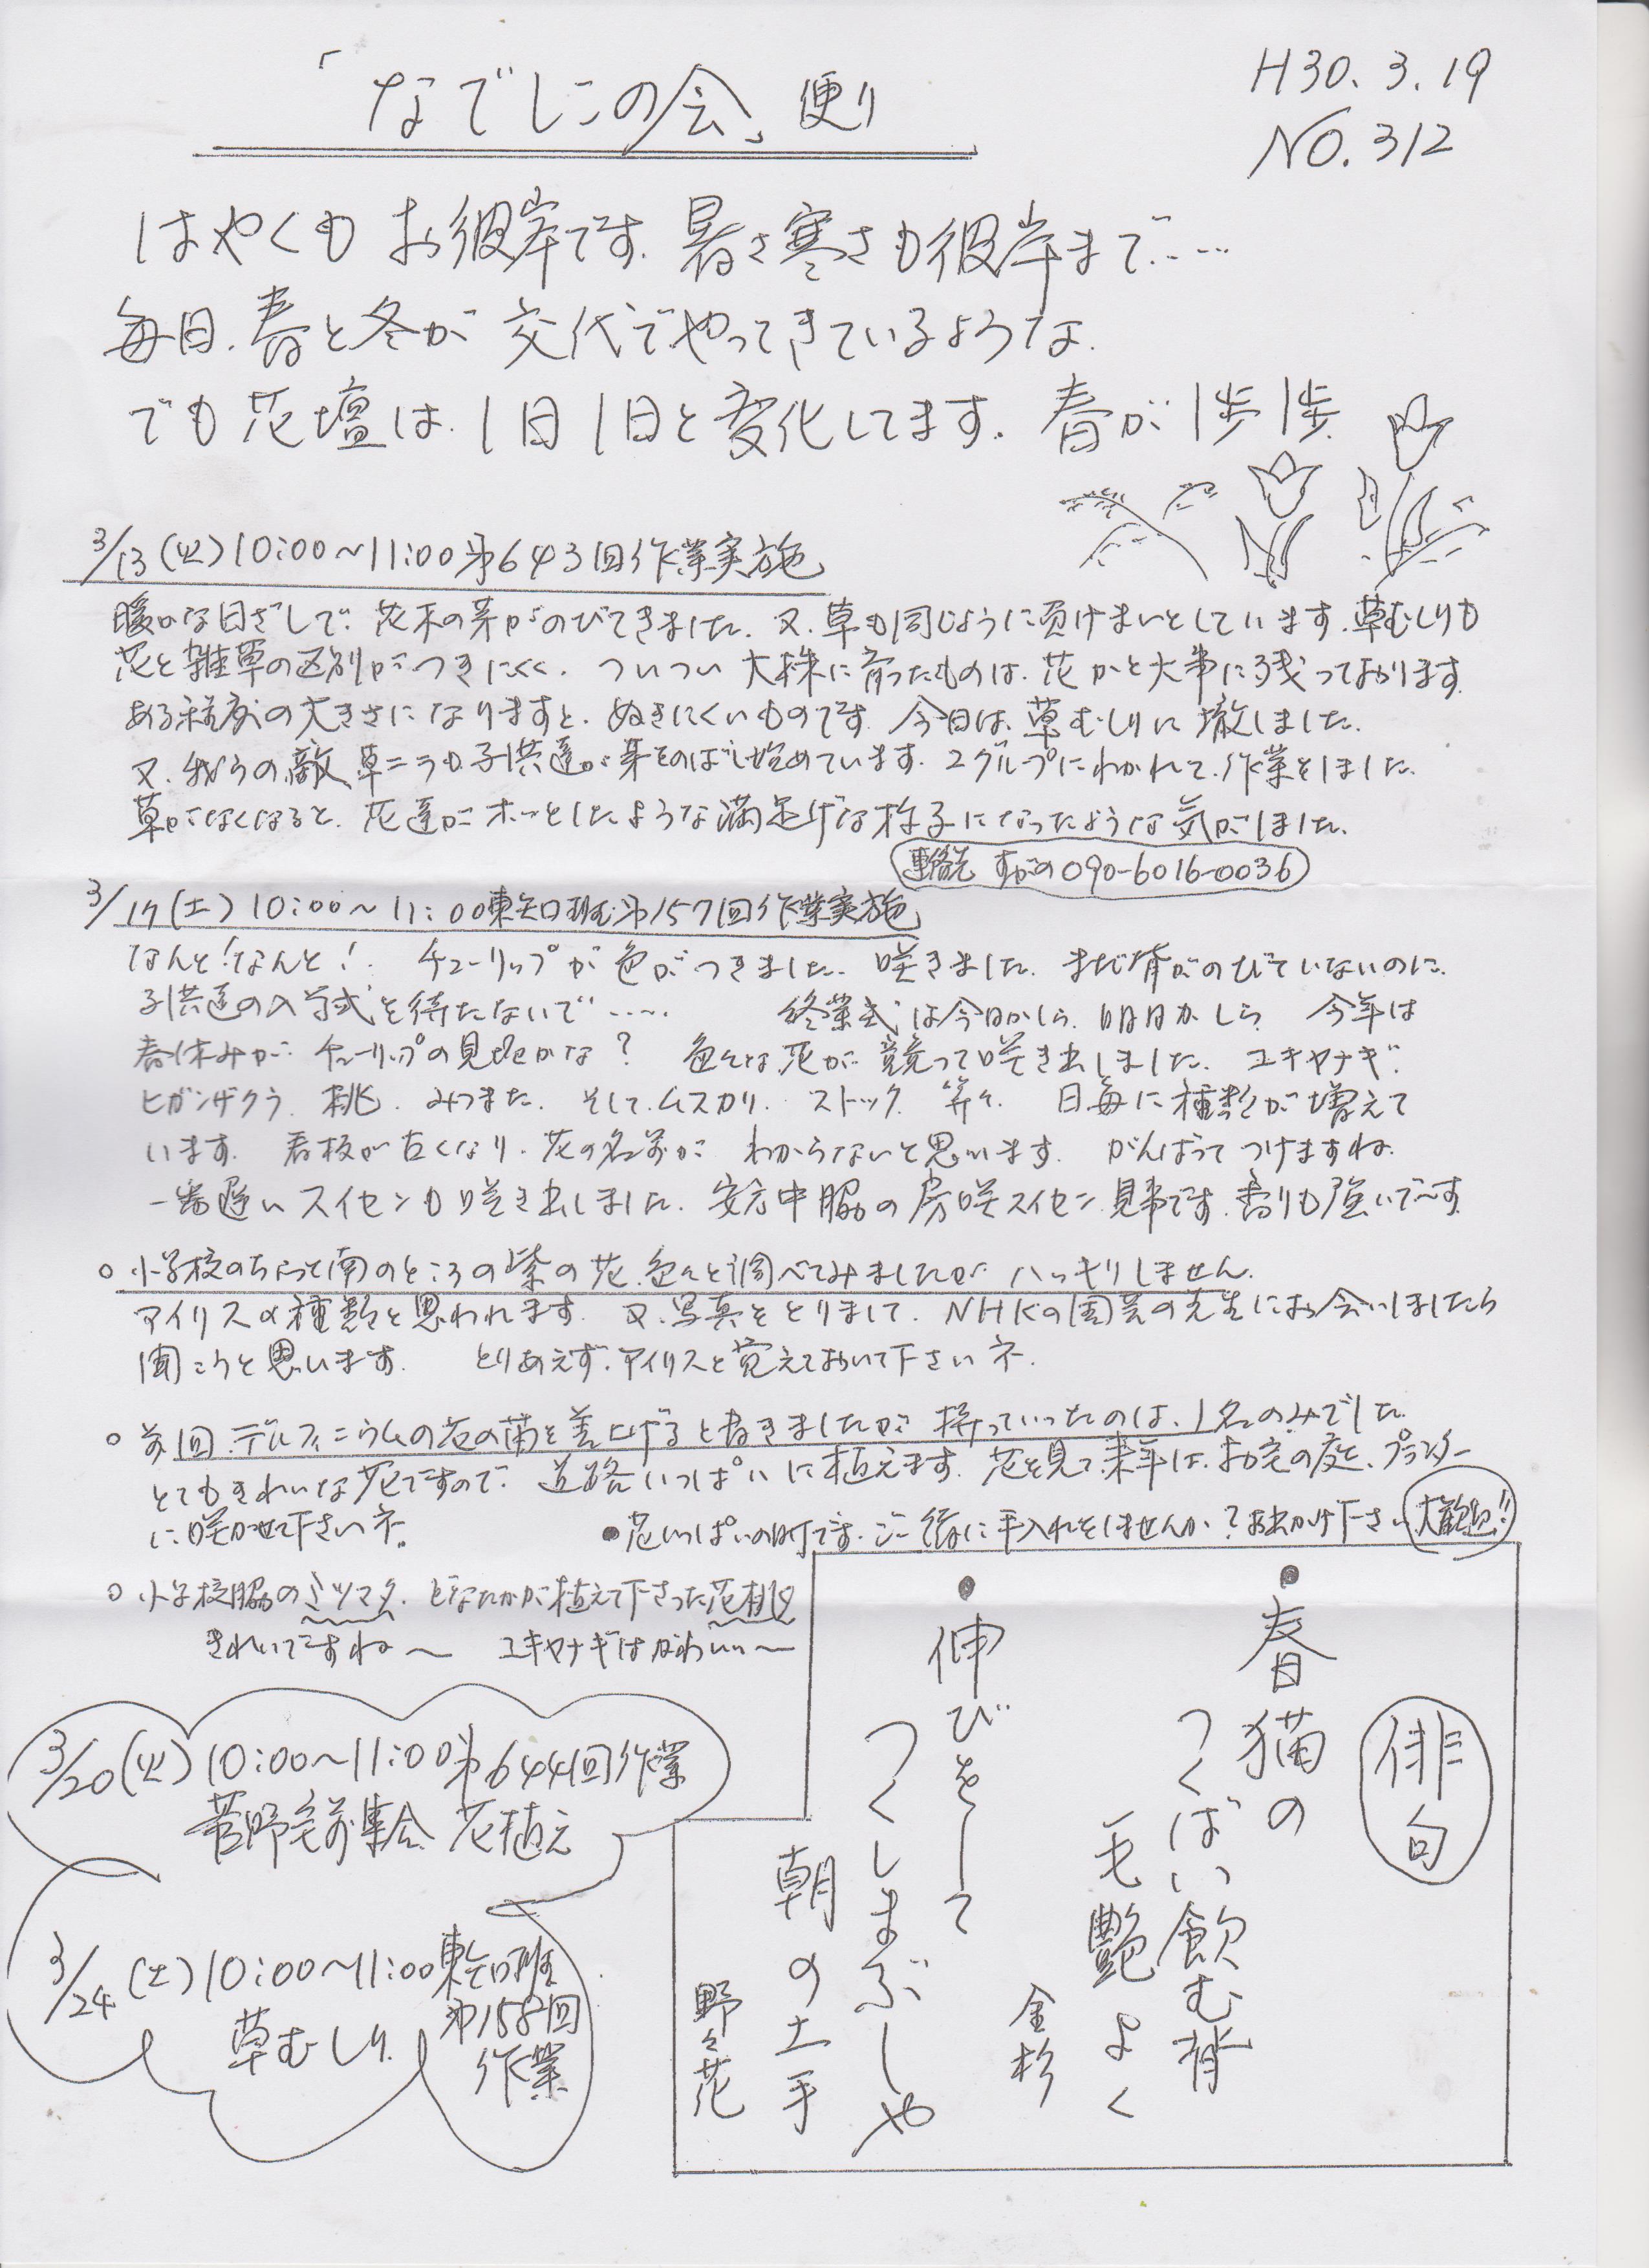 「なでしこの会」便り
H30.3.19
NO.312
はやくも お彼岸です. 暑さ寒さも彼岸まで‥‥
毎日.春と冬が 交代でやってきているような.
でも 花壇は.1日1日と変化してます. 春が 1歩1歩.
3/13(火)10:00〜11:00第643回作業実施
暖かな日ざしで. 花木の芽がのびてきました. 又.草も同じように負けまいとしています.草むしりも
花と雑草の区別がつきにくく. ついつい 大株に育ったものは.花かと大事に残っております.
ある程度の大きさになりますと.ぬきにくいものです. 今日は.草むしりに徹しました.
又.我らの敵 草ニラも子供達が芽をのばし始めています. 2グループにわかれて.作業をしました.
草がなくなると.花達がホーッとしたような満足げな様子になったような気がしました.
連絡先 すがの090-6016-0036
3/17(土)10:00〜11:00東知口班第157回作業実施
なんと!なんと! チューリップが色がつきました. 咲きました. まだ背がのびていないのに.
子供達の入学式を待たないで‥‥‥ 終業式は今日かしら.明日かしら 今年は
春休みが チューリップの見頃かな? 色々な花が競って咲き出しました. ユキヤナギ.
ヒガンザクラ. 桃. みつまた. そして.ムスカリ. ストック 等々. 日毎に種類が増えて
います. 看板が古くなり.花の名前が わからないと思います. がんばってつけますね.
一番遅いスイセンも咲き出しました. 安方中脇の房咲スイセン.見事です.香りも強いで〜す.
○ 小学校のちょっと南のところの紫の花.色々と調べてみましたが ハッキリしません.
アイリスの種類と思われます. 又.写真をとりまして. NHKの園芸の先生にお会いしましたら
聞こうと思います. とりあえず.アイリスと覚えておいて下さいネ.
○ 前回.デルフィニウムの花の苗を差上げると書きましたが 持っていったのは、1名のみでした.
とてもきれいな花ですので. 道路いっぱいに植えます. 花を見て.来年は.お宅の庭と、プランター
に咲かせて下さいネ.
●花いっぱいの町です. ご一緒に手入れをしませんか?お出かけ下さい 大歓迎!!
○ 小学校脇のミツマタ. どなたかが植えて下さった花桃
きれいですね〜 ユキヤナギはかわいい〜
俳句
●春猫の
つくばい飲む背
毛艶よく
金杉
●伸びをして
つくしまぶしや
朝の土手
野々花
3/20(火)10:00〜11:00第644回作業
菅野宅前集合 花植え
3/24(土)10:00〜11:00東知口班
第158回
作業
草むしり